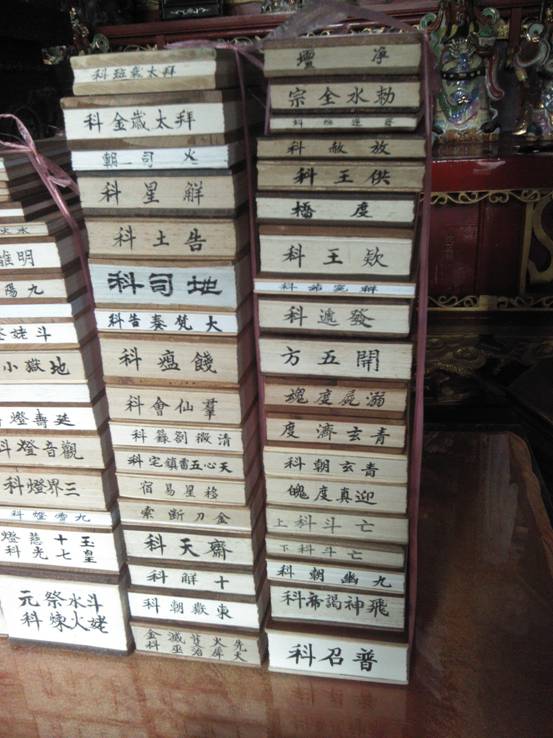 淨壇
勅水全宗
放赦科
供王科
度橋
欵王科
發遞科
開五方
溺屍度魂
青玄濟度
青玄朝科
迎真度魄
亡斗科上
亡斗科下
九幽朝科
飛神謁帝科
普召科
拜太歲科
拜太歲金科
火司朝
解星科
告土科
地司科
大梵奏告科
餞瘟科
羣仙會科
清微劄籙科
天心五雷鎮宅科
移星易宿
金刀斷索
齋天科
十解科
東嶽朝科
先火
天
金
科
明
九陽
斗姥
地嶽小
延壽燈
觀音燈科
三界燈科
九燈科
玉十慈燈
皇七光科
斗水祭元
姥火煉科